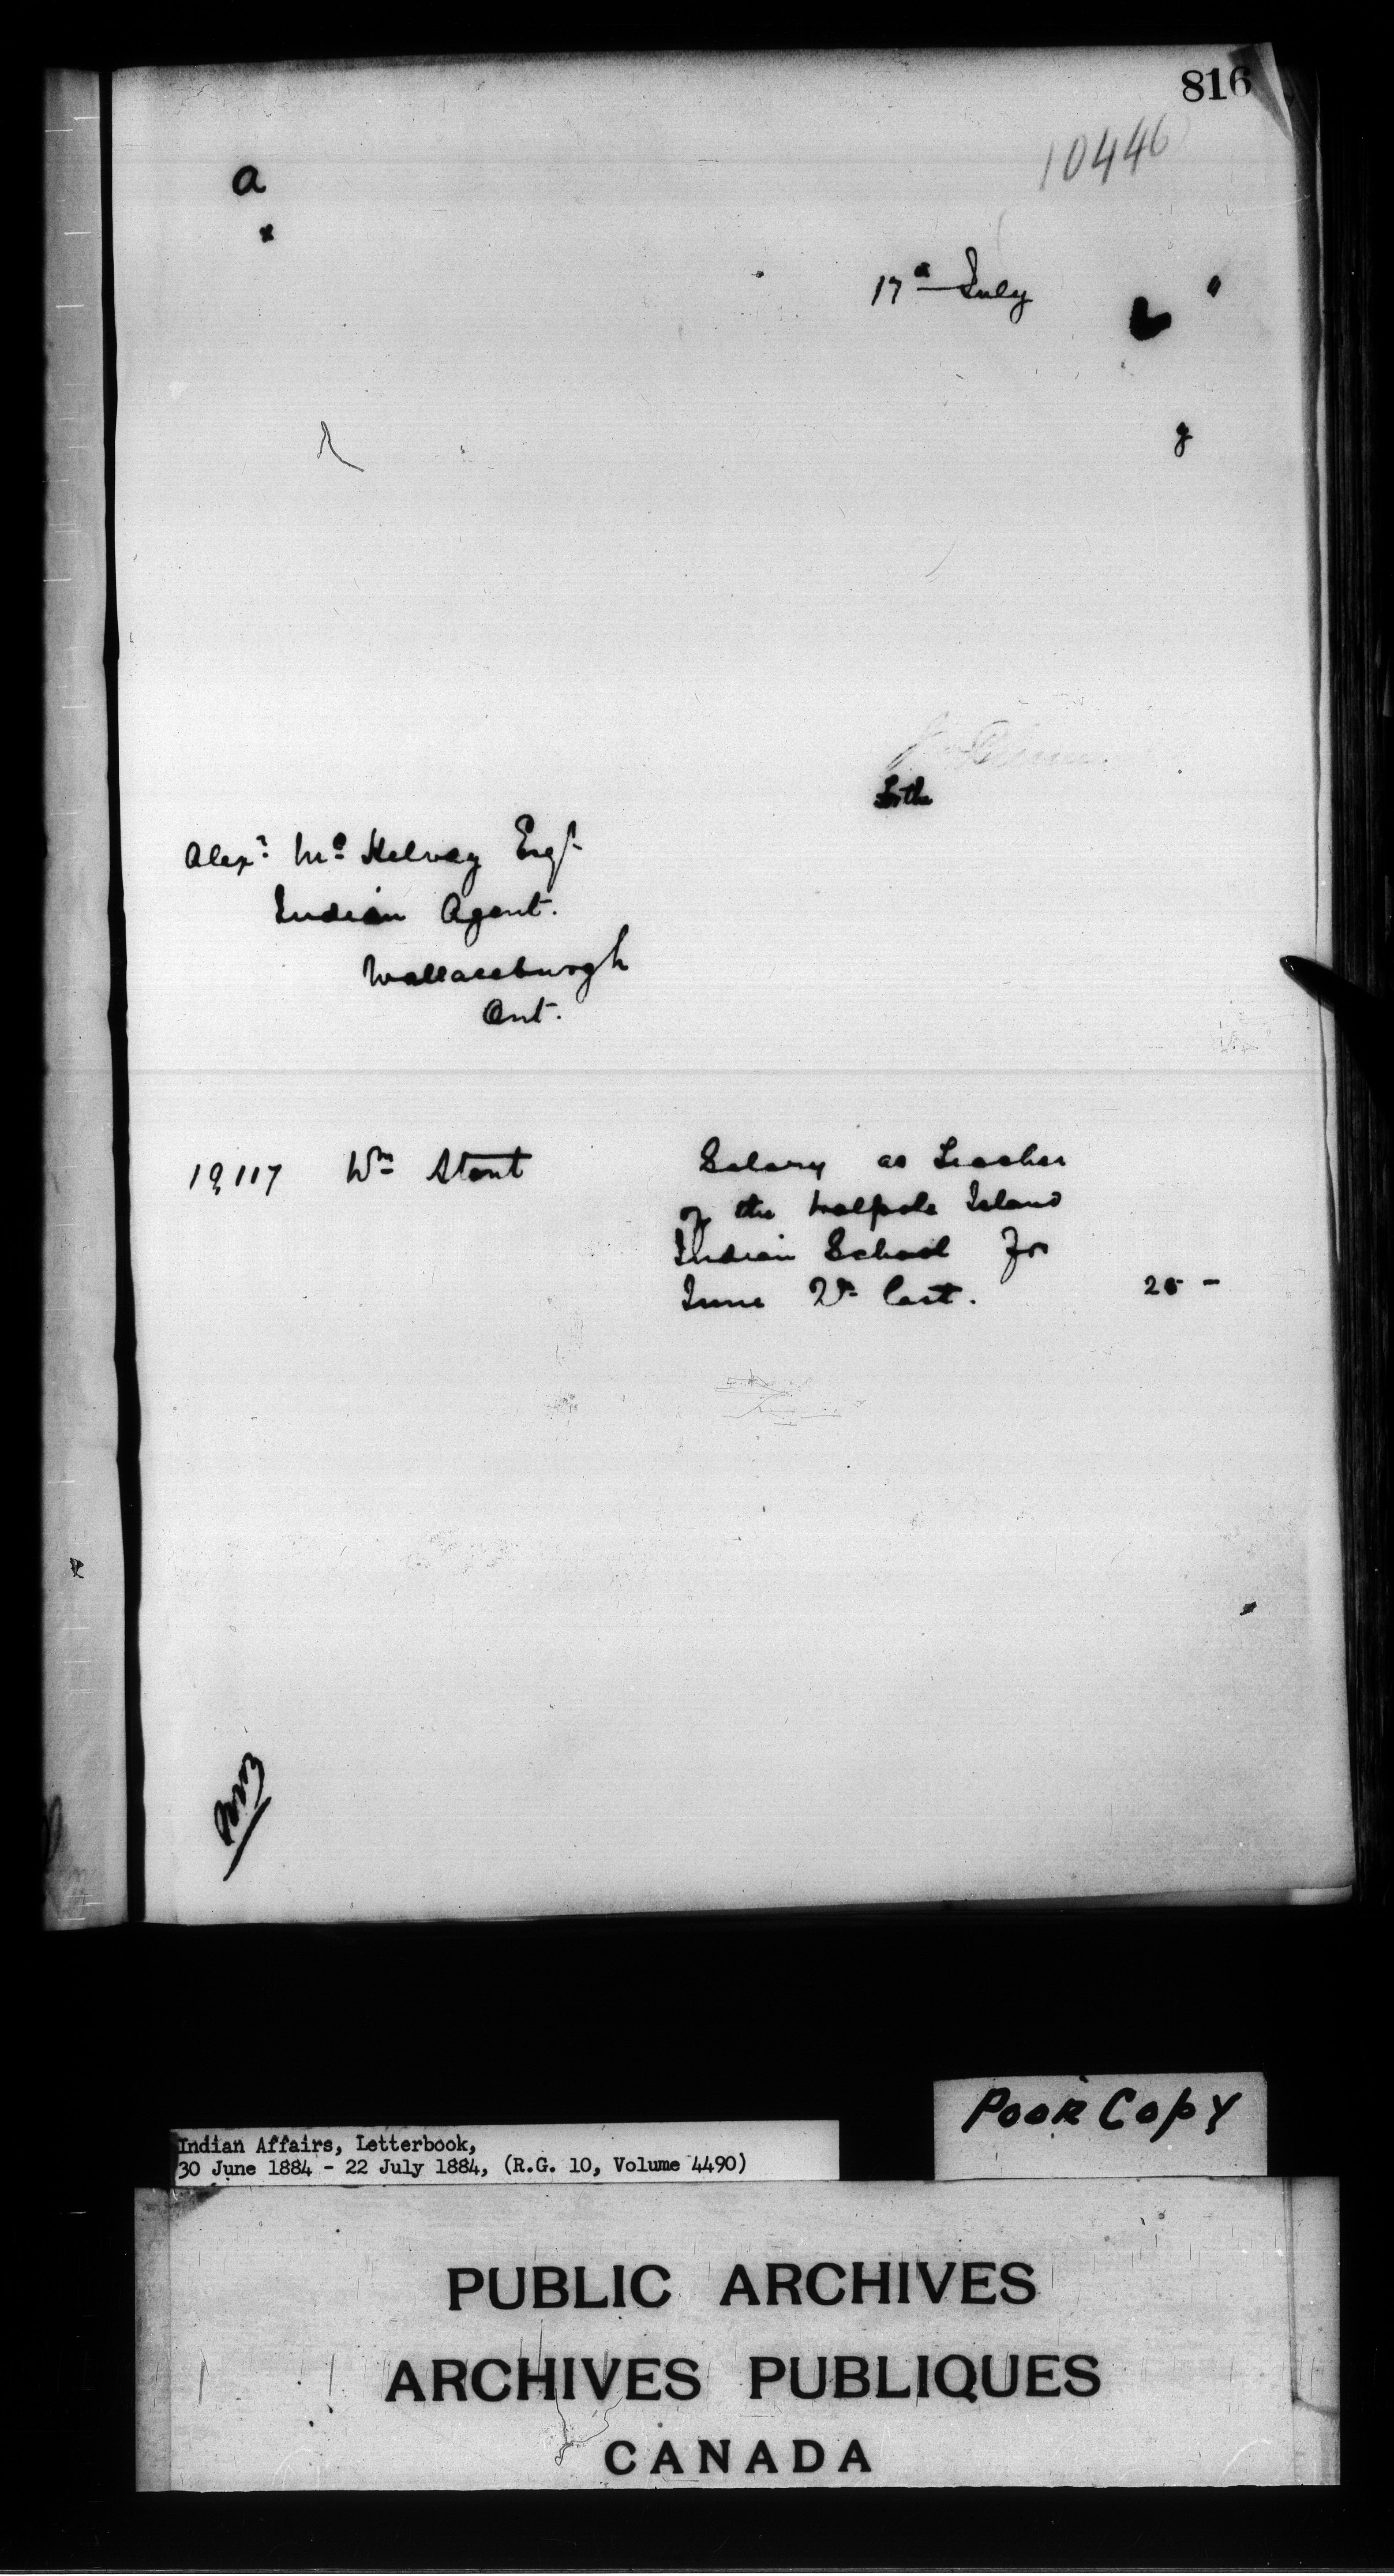 816
10446
a
17th July
For the
Alexr McKelvey Esqr
Indian Agent.
Wallaceburgh
Ont.
19,117 Wm Stout Salary as Teacher
of the Walpole Island
Indian School for
June Qr last. 25 -
Poor Copy
Indian Affairs, Letterbook,
30 June 1884 - 22 July 1884, (R.G. 10, Volume 4490)
PUBLIC ARCHIVES
ARCHIVES PUBLIQUES
CANADA